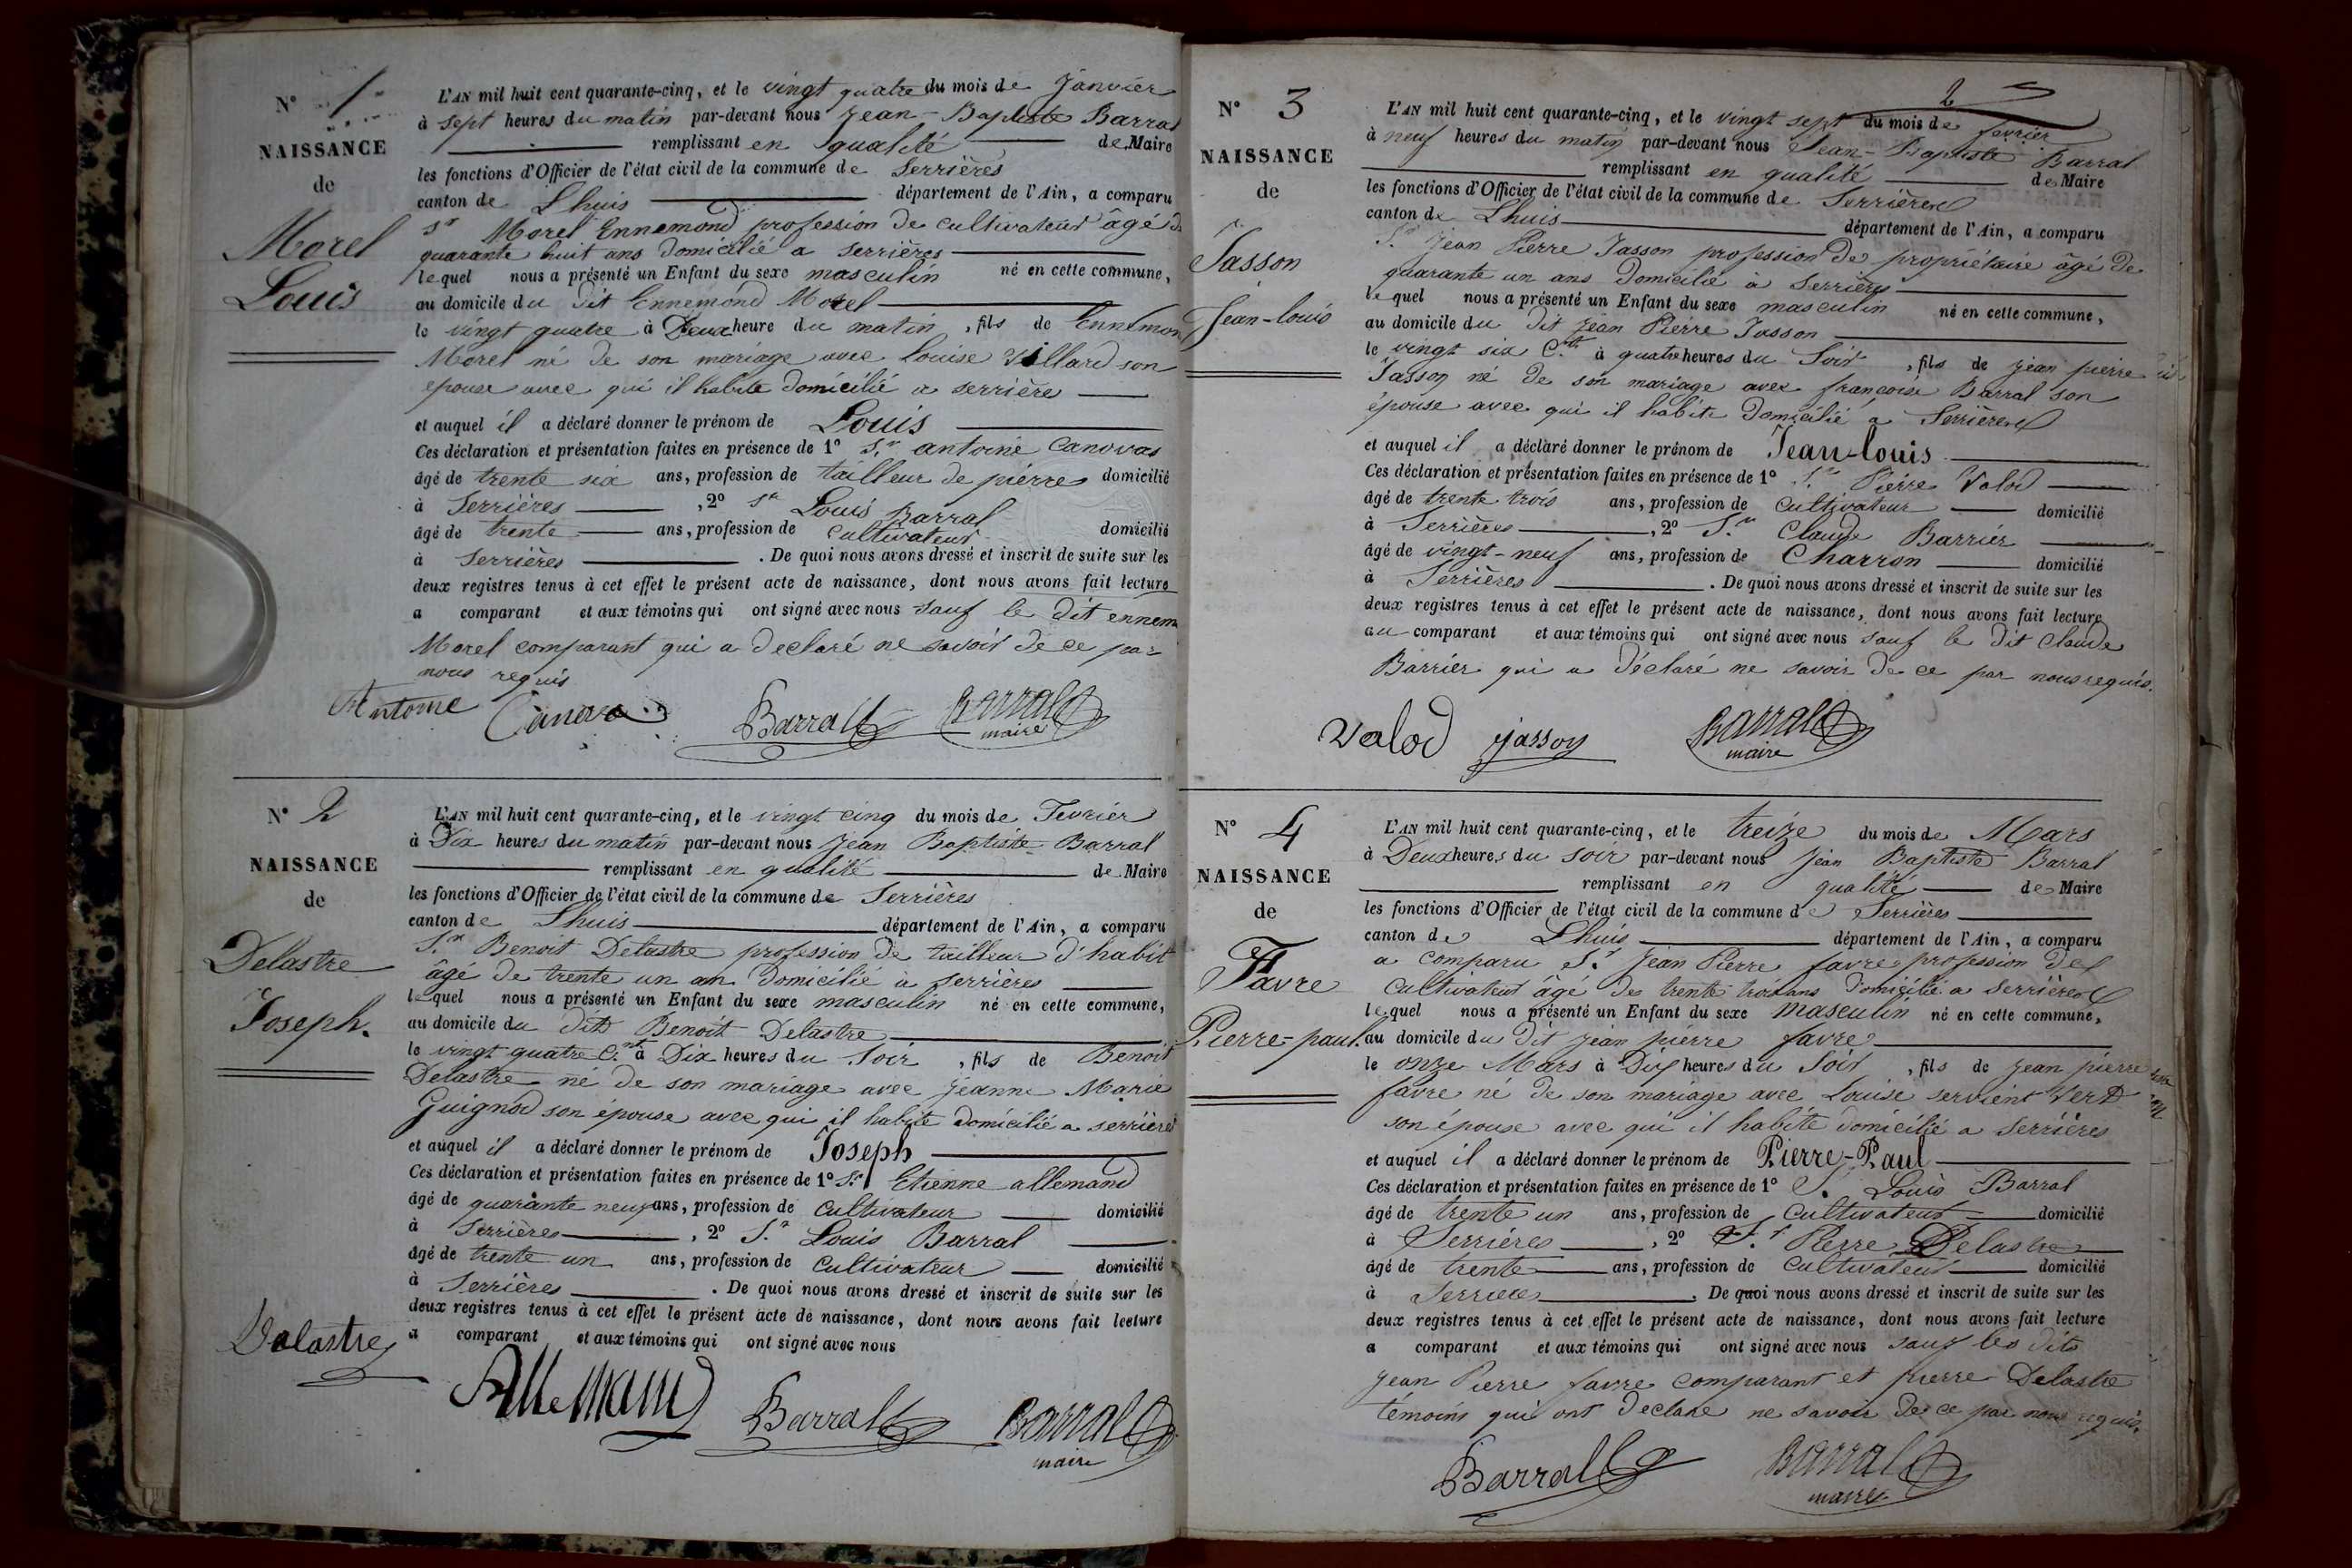 N° 1
NAISSANCE
de
Morel
Louis
L'AN mil huit cent quarante-cinq, et le vingt quatre du mois de Janvier
à sept heures du matin par-devant nous Jean-Baptiste Barral
remplissant en qualité de Maire
les fonctions d'Officier de l'état civil de la commune de Serrières
canton de Lhuis département de l'Ain, a comparu
Sr Morel Ennemond profession de cultivateur âgé de
quarante huit ans domicilié a serrières
lequel nous a présenté un Enfant du sexe masculin né en cette commune,
au domicile du dit Ennemond Morel
le vingt quatre à Deux heure du matin, fils de Ennemon
Morel né de son mariage avec Louise Villard son
épouse avec qui il habite domicilié a serrière
et auquel il a déclaré donner le prénom de Louis
Ces déclaration et présentation faites en présence de 1° Sr antoine Canovas
âgé de trente six ans, profession de tailleur de pierres domicilié
à Serrières, 2° Sr Louis Barral
âgé de trente ans, profession de cultivateur domicilié
à Serrières. De quoi nous avons dressé et inscrit de suite sur les
deux registres tenus à cet effet le présent acte de naissance, dont nous avons fait lecture
a comparant et aux témoins qui ont signé avec nous sauf le dit ennem
Morel comparant qui a declaré ne savoir de ce par
nous requis
Antoine Canova Barral Barral
maire
N° 2
NAISSANCE
de
Delastre
Joseph.
L'AN mil huit cent quarante-cinq, et le vingt cinq du mois de Fevrier
à Dix heures du matin par-devant nous Jean Baptiste Barral
remplissant en qualité de Maire
les fonctions d'Officier de l'état civil de la commune de Serrières
canton de Lhuis département de l'Ain, a comparu
Sr Benoit Delastre profession de tailleur d'habit
âgé de trente un an domicilié à serrières
lequel nous a présenté un Enfant du sexe masculin né en cette commune,
au domicile du dit Benoit Delastre
le vingt quatre Cnt à Dix heures du Soir, fils de Benoit
Delastre né de son mariage avec Jeanne Marie
Guignod son épouse avec qui il habite domicilié a serrières
et auquel il a déclaré donner le prénom de Joseph
Ces déclaration et présentation faites en présence de 1° Sr Etienne allemand
âgé de quarante neuf ans, profession de cultivateur domicilié
à Serrières, 2° Sr Louis Barral
âgé de trente un ans, profession de cultivateur domicilié
à Serrières. De quoi nous avons dressé et inscrit de suite sur les
deux registres tenus à cet effet le présent acte de naissance, dont nous avons fait lecture
a comparant et aux témoins qui ont signé avec nous
Delastre
Allemand Barral Barral
maire
2
N° 3
NAISSANCE
de
Jasson
Jean-louis
L'AN mil huit cent quarante-cinq, et le vingt sept du mois de fevrier
à neuf heures du matin par-devant nous Jean-Baptiste Barral
remplissant en qualité de Maire
les fonctions d'Officier de l'état civil de la commune de Serrières
canton de Lhuis département de l'Ain, a comparu
Sr Jean Pierre Jasson profession de propriétaire âgé de
quarante un ans domicilié à Serrières
lequel nous a présenté un Enfant du sexe masculin né en cette commune,
au domicile du dit Jean Pierre Jasson
le vingt six Ct à quatre heures du Soir, fils de Jean pierre
Jasson né de son mariage avec françoise Barral son
épouse avec qui il habite domicilié a Serrières
et auquel il a déclaré donner le prénom de Jean-louis
Ces déclaration et présentation faites en présence de 1° Sr Pierre Valod
âgé de trente trois ans, profession de cultivateur domicilié
à Serrières, 2° Sr Claude Barrier
âgé de vingt-neuf ans, profession de Charron domicilié
à Serrières. De quoi nous avons dressé et inscrit de suite sur les
deux registres tenus à cet effet le présent acte de naissance, dont nous avons fait lecture
au comparant et aux témoins qui ont signé avec nous sauf le dit Claude
Barrier qui a déclaré ne savoir de ce par nous requis.
Valod jasson Barral
maire
N° 4
NAISSANCE
de
Favre
Pierre-paul.
L'AN mil huit cent quarante-cinq, et le treize du mois de Mars
à Deux heures du soir par-devant nous Jean Baptiste Barral
remplissant en qualité de Maire
les fonctions d'Officier de l'état civil de la commune de Serrières
canton de Lhuis département de l'Ain, a comparu
a comparu Sr Jean Pierre favre profession de
cultivateur âgé de trente trois ans domicilié a serrières
lequel nous a présenté un Enfant du sexe masculin né en cette commune,
au domicile du dit jean pierre favre
le onze Mars à Dix heures du Soir, fils de jean pierre
favre né de son mariage avec Louise servient Vert
son épouse avec qui il habite domicilié a Serrières
et auquel il a déclaré donner le prénom de Pierre-Paul
Ces déclaration et présentation faites en présence de 1° S. Louis Barral
âgé de trente un ans, profession de cultivateur domicilié
à Serrières, 2° Sr Pierre Delastre
âgé de trente ans, profession de cultivateur domicilié
à Serrières. De quoi nous avons dressé et inscrit de suite sur les
deux registres tenus à cet effet le présent acte de naissance, dont nous avons fait lecture
a comparant et aux témoins qui ont signé avec nous sauf les dits
jean Pierre favre comparant et pierre Delastre
témoins qui ont declaré ne savoir de ce par nous requis.
Barral Barral
maire